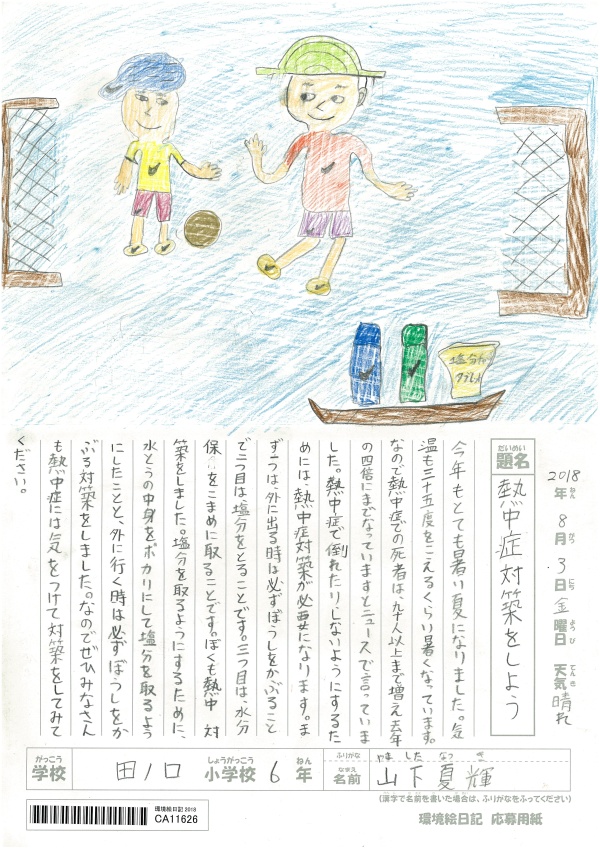 塩分
タブレット
2018年 8月 3日 金曜日 天気 晴れ
ねん がつ にち ようび てんき
だいめい
題名
熱中症対築をしよう
今年もとても暑い夏になりました。気
温も三十五度をこえるくらい暑くなっています。
なので熱中症での死者は、九十人以上まで増え去年
の四倍にまでなっていますとニュースで言っていま
した。熱中症で倒れたりしないようにするた
めには、熱中症対築が必要になります。ま
ず一つは、外に出る時は必ずぼうしをかぶること
で二つ目は、塩分をとることです。三つ目は、水分
保 をこまめに取ることです。ぼくも熱中 対
築をしました。塩分を取るようにするために、
水とうの中身をポカリにして塩分を取るよう
にしたことと、外に行く時は必ずぼうしをか
ぶる対築をしました。なのでぜひみなさん
も熱中症には気をつけて対築をしてみて
ください。
がっこう しょうがっこう ねん ふりがな やま した なつ き
学校 田ノ口 小学校 6年 なまえ 名前 山下夏輝
(漢字で名前を書いた場合は、ふりがなをふってください)
環境絵日記2018
CA11626
環境絵日記 応募用紙